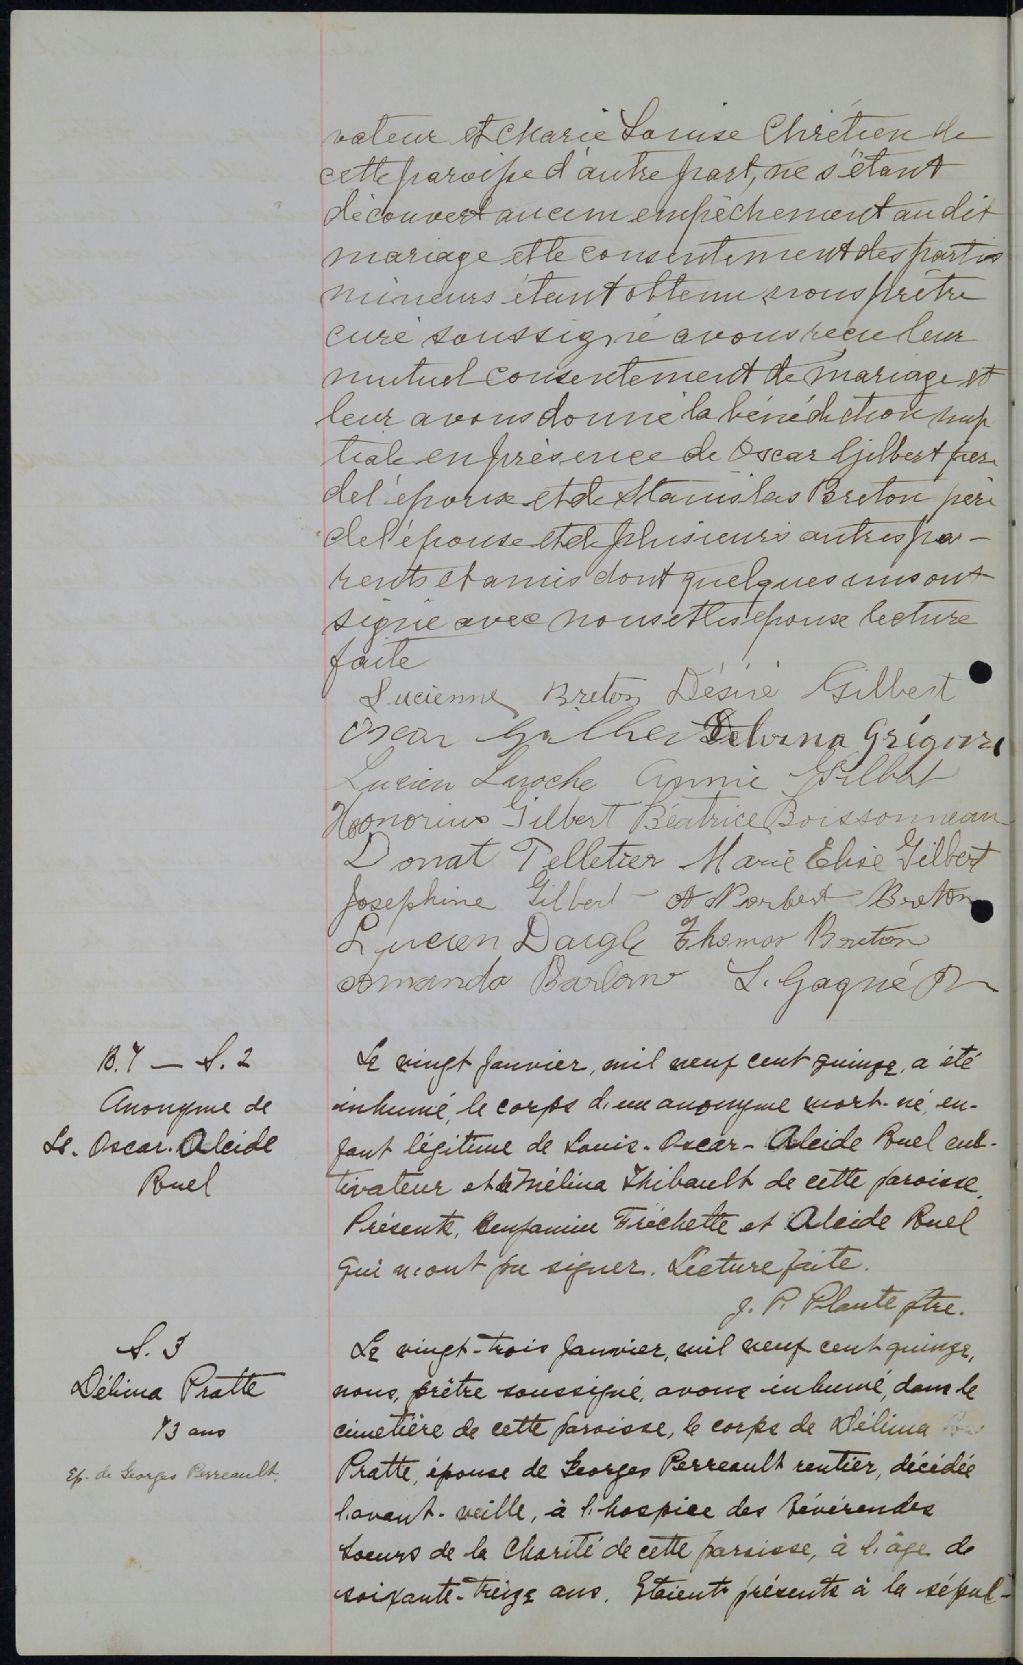 vateur et Marie Louise Chrétien de
cette paroisse d'autre part, ne s'étant
découvert aucun empêchement au dit
mariage et le consentement des parties
mineurs étant obtenu nous prêtre
curé soussigné avons reçu leur
mutuel consentement de mariage et
leur avons donné la bénédiction nup
tiale en présence de Oscar Gilbert père
de l'époux et de Stanislas Breton père
de l'épouse et de plusieurs autres pa-
rents et amis dont quelques uns ont
signé avec nous et les epoux lecture
faite
Lucienne Breton Désiré Gilbert
Oscar Gilbert Delvina Grégoire
Lucien Laroche Annie Gilbert
Honorius Gilbert Béatrice Boissonneau
Donat Pelletier Marie Elise Gilbert
Josephine Gilbert A Norbert Breton
Lucien Daigle Thomas Breton
Amanda Barlow L. Gagné Ptr
B. 7 — S. 2
Anonyme de
Ls. Oscar. Alcide
Ruel
Le vingt Janvier, mil neuf cent quinze, a été
inhumé, le corps d'un anonyme mort-né, en-
fant légitime de Louis-Oscar-Alcide Ruel cul-
tivateur et de Mélina Thibault de cette paroisse.
Présents, Benjamin Fréchette et Alcide Ruel
qui n'ont pu signer. Lecture faite.
J. P. Plante ptre.
S. 3
Délima Pratte
73 ans
Ep. de Georges Perreault.
Le vingt-trois Janvier, mil neuf cent quinze,
nous, prêtre soussigné, avons inhumé, dans le
cimetière de cette paroisse, le corps de Délima
Pratte, épouse de Georges Perreault rentier, décédée
l'avant-veille, à l'hospice des Révérendes
Soeurs de la Charité de cette paroisse, à l'âge de
soixante-treize ans. Etaient présents à la sépul-